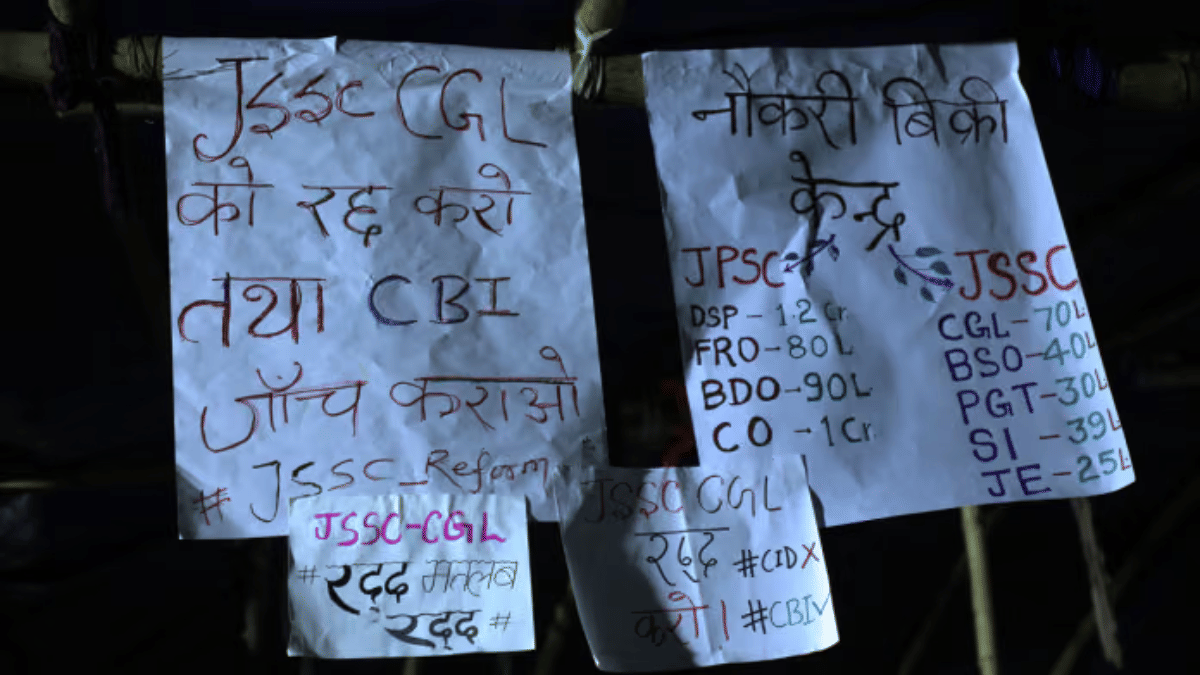 JSSC CGL
को रद्द करो
तथा CBI
जाँच कराओ
#JSSC_Reform
नौकरी बिक्री
केन्द्र
JPSC
DSP - 1.2 Cr
FRO - 80 L
BDO - 90 L
CO - 1 Cr
JSSC
CGL - 70 L
BSO - 40 L
PGT - 30 L
SI - 39 L
JE - 25 L
JSSC-CGL
# रद्द मतलब
रद्द #
JSSC CGL
रद्द #CID X
करो। #CBI✓